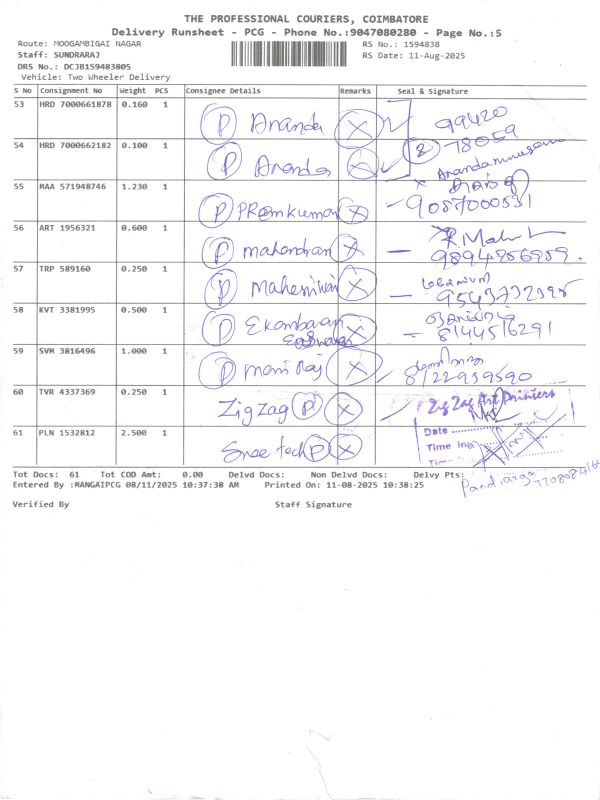 THE PROFESSIONAL COURIERS, COIMBATORE
Delivery Runsheet - PCG - Phone No.:9047080280 - Page No.:5
Route: MOOGAMBIGAI NAGAR
RS No.: 1594838
Staff: SUNDRARAJ
RS Date: 11-Aug-2025
DRS No.: DCJB159483805
Vehicle: Two Wheeler Delivery
S No Consignment No Weight PCS Consignee Details Remarks Seal & Signature
53 HRD 7000661878 0.160 1 P Ananda X 99420
54 HRD 7000662182 0.100 1 P Ananda X 2 78059
55 MAA 571948746 1.230 1 P PRemkumar X 9087000531
56 ART 1956321 0.600 1 P mahendran X
57 TRP 589160 0.250 1 P X
58 KVT 3381995 0.500 1 P X 8144516291
59 SVM 3816496 1.000 1 P mani Raj X 8122959590
60 TVR 4337369 0.250 1 Zig Zag P X Zig Zag Art Printers
Date
61 PLN 1532812 2.500 1 Sree tech P X Time In
Time
Tot Docs: 61 Tot COD Amt: 0.00 Delvd Docs: Non Delvd Docs: Delvy Pts:
Entered By :MANGAIPCG 08/11/2025 10:37:38 AM Printed On: 11-08-2025 10:38:25
Verified By Staff Signature